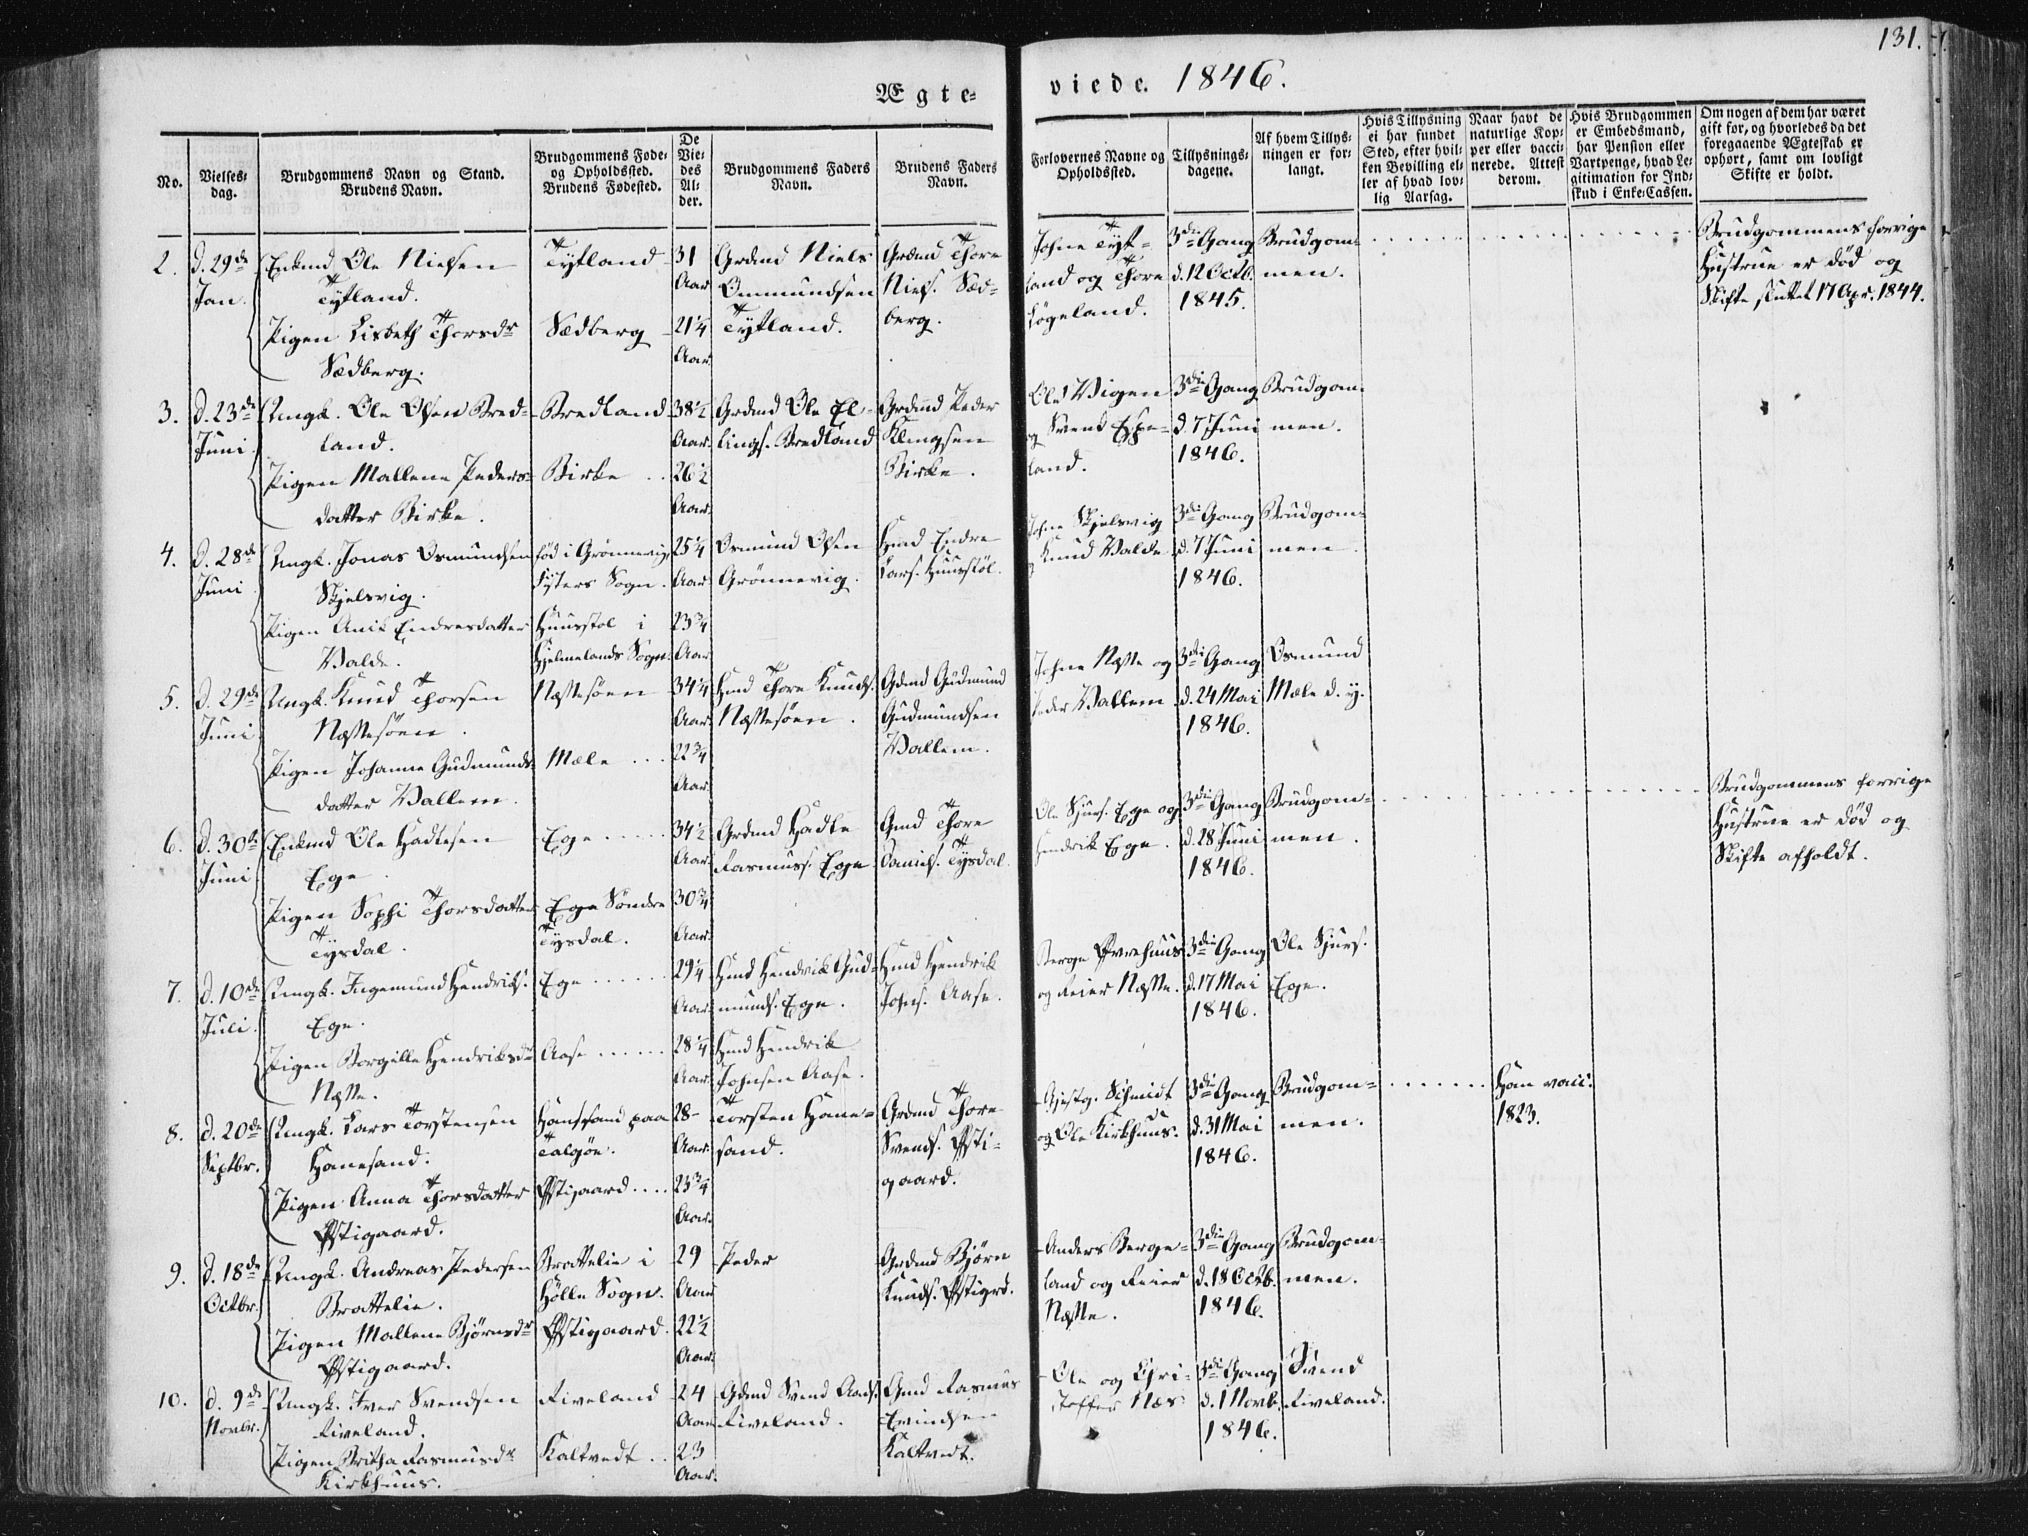 131.
Ægte-
viede. 1846.
No.
Vielses-
dag.
Brudgommens Navn og Stand.
Brudens Navn.
Brudgommens Føde-
og Opholdssted.
Brudens Fødested.
De
Vie-
des
Al-
der.
Brudgommens Faders
Navn.
Brudens Faders
Navn.
Forlovernes Navne og
Opholdssted.
Tillysnings-
dagene.
Af hvem Tillys-
ningen er for-
langt.
Hvis Tillysning
ei har fundet
Sted, efter hvil-
ken Bevilling el-
ler af hvad lov-
lig Aarsag.
Naar havt de
naturlige Kop-
per eller vacci-
nerede. Attest
derom.
Hvis Brudgommen
er Embedsmand,
har Pension eller
Vartpenge, hvad Le-
gitimation for Ind-
skud i Enke-Cassen.
Om nogen af dem har været
gift før, og hvorledes da det
foregaaende Ægteskab er
ophørt, samt om lovligt
Skifte er holdt.
2.
d. 29de
Jan.
Enkmd Ole Nielsen
Tytland.
Pigen Lisbeth Thorsdr
Sædberg.
Tytland
Sædberg
31
Aar
21 1/4
Aar
Grdmd Niels
Ommundsen
Tytland.
Grdmd Thore
Niels. Sæd-
berg.
Johne Tyt-
land og Thore
Løgeland.
3die Gang
d. 12 Octb.
1845.
Brudgom-
men.
Brudgommens forrige
Hustrue er død og
Skifte sluttet 17 Apr. 1844.
3.
d. 23de
Juni
Ungk. Ole Olsen Bred-
land.
Pigen Mallene Peders-
datter Birke.
Bredland
Birke
38 1/2
Aar
26 1/2
Aar
Grdmd Ole El-
lings. Bredland
Grdmd Peder
Klengsen
Birke.
Ole Vigen
og Svend Espe-
land.
3die Gang
d. 7 Juni
1846.
Brudgom-
men.
4.
d. 28de
Juni
Ungk. Jonas Osmundsen
Skjelsvig.
Pigen Anie Endresdatter
Valde.
født i Grønnevig,
Jyters Sogn.
Huusstol i
Hjelmelands Sogn.
25 1/4
Aar
23 3/4
Aar
Osmund Olsen
Grønnevig.
Hmd Endre
Lars. Huusstøl.
Johne Skjelsvig
og Knud Valde
3die Gang
d. 7 Juni
1846.
Brudgom-
men.
5.
d. 29de
Juni
Ungk. Knud Thorsen
Næssesøen.
Pigen Johanne Gudmunds-
datter Vallem.
Næssesøen
Mæle
34 1/4
Aar
22 3/4
Aar
Hmd Thore Knuds.
Næssesøen.
Gdmd Gudmund
Gudmundsen
Vallem.
Johne Næsse og
Peder Vallem
3die Gang
d. 24 Mai
1846.
Osmund
Mæle d. y.
6.
d. 30te
Juni
Enkmd Ole Hadlesen
Ege
Pigen Sophi Thorsdatter
Tysdal.
Ege
Søndre
Tysdal.
34 1/2
Aar
30 3/4
Aar
Grdmd Hadle
Rasmuss. Ege
Gmd Thore
Daniels. Tysdal.
Ole Sjurs. Ege og
Hendrik Ege.
3die Gang
d. 28 Juni
1846.
Brudgom-
men.
Brudgommens forrige
Hustrue er død og
Skifte afholdt.
7.
d. 10de
Juli
Ungk. Ingemund Hendriks.
Ege.
Pigen Borgilla Hendriksdr
Næsse.
Ege
Aase
29 1/4
Aar
28 1/4
Aar
Hmd Hendrik Gud-
munds. Ege.
Hmd Hendrik
Johnsen Aase.
Hmd Hendrik
Johns. Aase.
Berge Øvrehuus
og Reier Næsse.
3die Gang
d. 17 Mai
1846.
Ole Sjurs.
Ege.
8.
d. 20de
Septbr.
Ungk. Lars Torstensen
Hanesand.
Pigen Anna Thorsdatter
Østigaard.
Hanesand paa
Talgjøe.
Østigaard
28
Aar
23 3/4
Aar
Torsten Hane-
sand.
Grdmd Thore
Svends. Østi-
gaard.
Gjestg. Schmidt
og Ole Kirkhuus.
3die Gang
d. 31 Mai
1846.
Brudgom-
men.
Han vacc.
1823.
9.
d. 18de
Octbr.
Ungk. Andreas Pedersen
Brattelie.
Pigen Mallene Bjørnsdr
Østigaard.
Brattelie i
Hølle Sogn.
Østigaard.
29
Aar
22 1/2
Aar
Peder
Grdmd Bjørn
Knuds. Østigrd.
Anders Berge-
land og Reier
Næsse.
3die Gang
d. 18 Octb.
1846.
Brudgom-
men.
10.
d. 9de
Novbr.
Ungk. Iver Svendsen
Riveland.
Pigen Britha Rasmusdr
Kirkhuus.
Riveland
Kaltvedt
24
Aar
23
Aar
Gdmd Svend Aads.
Riveland.
Gmd Rasmus
Evindsen
Kaltvedt.
Ole og Chri-
stoffer Næs
3die Gang
d. 1 Novb.
1846.
Svend
Riveland.